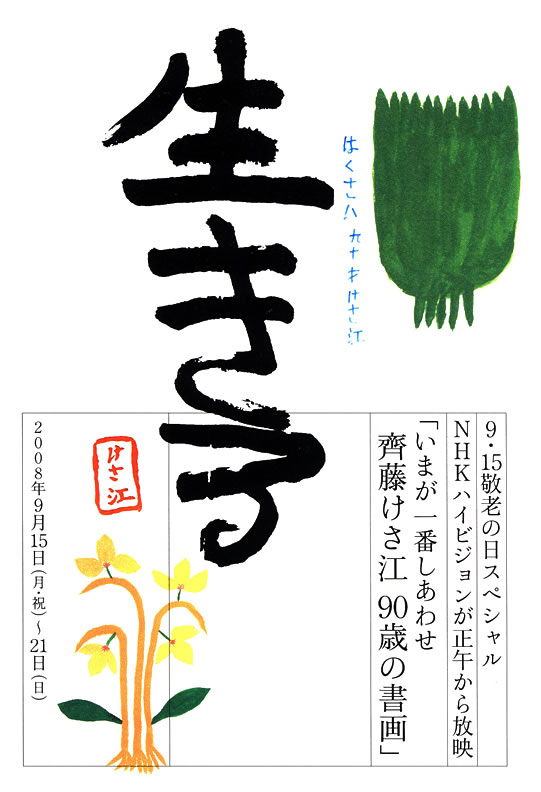 はくさ八 九十才 けさ江
生きる
9・15敬老の日スペシャル
NHKハイビジョンが正午から放映
「いまが一番しあわせ
齊藤けさ江 90歳の書画」
けさ江
2008年9月15日(月・祝)〜21日(日)